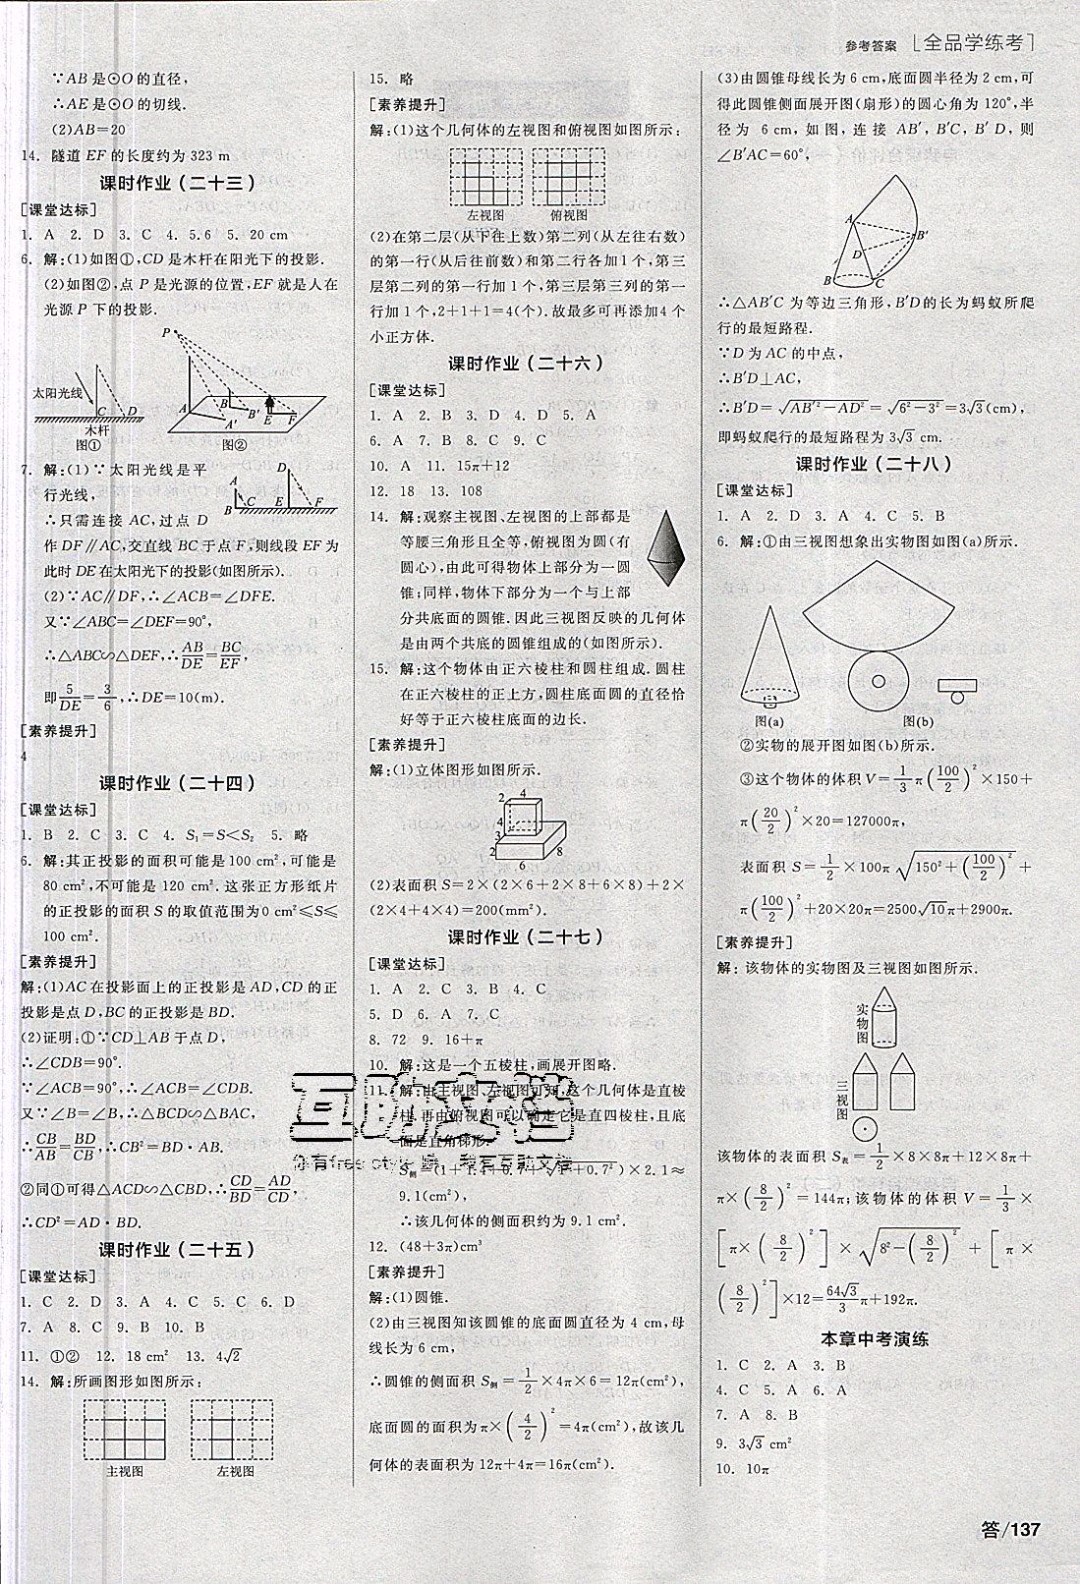 参考答案 [全品学练考]
∵AB是⊙O的直径,
∴AE是⊙O的切线.
(2)AB=20
14. 隧道EF的长度约为323 m
课时作业(二十三)
[课堂达标]
1. A 2. D 3. C 4. 5.6 5. 20 cm
6. 解:(1)如图①,CD是木杆在阳光下的投影.
(2)如图②,点P是光源的位置,EF就是人在
光源P下的投影.
太阳光线
C D
木杆
图①
P
A B B' A' E F
图②
7. 解:(1)∵太阳光线是平
行光线,
∴只需连接AC,过点D
作DF∥AC,交直线BC于点F,则线段EF为
此时DE在太阳光下的投影(如图所示).
A B C D E F
(2)∵AC∥DF,∴∠ACB=∠DFE.
又∵∠ABC=∠DEF=90°,
∴△ABC∽△DEF,∴AB/DE=BC/EF,
即5/DE=3/6,∴DE=10(m).
[素养提升]
4
课时作业(二十四)
[课堂达标]
1. B 2. C 3. C 4. S₁=S<S₂ 5. 略
6. 解:其正投影的面积可能是100 cm²,可能是
80 cm²,不可能是120 cm². 这张正方形纸片
的正投影的面积S的取值范围为0 cm²≤S≤
100 cm².
[素养提升]
解:(1)AC在投影面上的正投影是AD,CD的正
投影是点D,BC的正投影是BD.
(2)证明:①∵CD⊥AB于点D,
∴∠CDB=90°.
∵∠ACB=90°,∴∠ACB=∠CDB.
又∵∠B=∠B,∴△BCD∽△BAC,
∴CB/AB=BD/CB,∴CB²=BD·AB.
②同①可得△ACD∽△CBD,∴CD/BD=AD/CD,
∴CD²=AD·BD.
课时作业(二十五)
[课堂达标]
1. C 2. D 3. A 4. C 5. C 6. D
7. A 8. C 9. B 10. B
11. ①② 12. 18 cm² 13. 4√2
14. 解:所画图形如图所示:
主视图 左视图
15. 略
[素养提升]
解:(1)这个几何体的左视图和俯视图如图所示:
左视图 俯视图
(2)在第二层(从下往上数)第二列(从左往右数)
的第一行(从后往前数)和第二行各加1个,第三
层第二列的第一行加1个,第三层第三列的第一
行加1个,2+1+1=4(个). 故最多可再添加4个
小正方体.
课时作业(二十六)
[课堂达标]
1. A 2. B 3. D 4. D 5. A
6. A 7. B 8. C 9. C
10. A 11. 15π+12
12. 18 13. 108
14. 解:观察主视图、左视图的上部都是
等腰三角形且全等,俯视图为圆(有
圆心),由此可得物体上部分为一圆
锥;同样,物体下部分为一个与上部
分共底面的圆锥. 因此三视图反映的几何体
是由两个共底的圆锥组成的(如图所示).
15. 解:这个物体由正六棱柱和圆柱组成. 圆柱
在正六棱柱的正上方,圆柱底面圆的直径恰
好等于正六棱柱底面的边长.
[素养提升]
解:(1)立体图形如图所示.
2 4 4 3 2 6 8
(2)表面积S=2×(2×6+2×8+6×8)+2×
(2×4+4×4)=200(mm²).
课时作业(二十七)
[课堂达标]
1. A 2. C 3. B 4. C
5. D 6. A 7. C
8. 72 9. 16+π
10. 解:这是一个五棱柱,画展开图略.
11. 解:由主视图、左视图可知,这个几何体是直棱
柱. 再由俯视图可以确定它是直四棱柱,且底
面是直角梯形.
S侧=(1+1.4+0.7+√(1²+0.7²))×2.1≈
9.1(cm²),
∴该几何体的侧面积约为9.1 cm².
12. (48+3π)cm³
[素养提升]
解:(1)圆锥.
(2)由三视图知该圆锥的底面圆直径为4 cm,母
线长为6 cm,
∴圆锥的侧面积S侧=1/2×4π×6=12π(cm²),
底面圆的面积为π×(4/2)²=4π(cm²),故该几
何体的表面积为12π+4π=16π(cm²).
互助文档
(3)由圆锥母线长为6 cm,底面圆半径为2 cm,可
得此圆锥侧面展开图(扇形)的圆心角为120°,半
径为6 cm,如图,连接AB',B'C,B'D,则
∠B'AC=60°,
A B' D B C
∴△AB'C为等边三角形,B'D的长为蚂蚁所爬
行的最短路程.
∵D为AC的中点,
∴B'D⊥AC,
∴B'D=√(AB'²-AD²)=√(6²-3²)=3√3(cm),
即蚂蚁爬行的最短路程为3√3 cm.
课时作业(二十八)
[课堂达标]
1. A 2. D 3. A 4. C 5. B
6. 解:①由三视图想象出实物图如图(a)所示.
图(a) 图(b)
②实物的展开图如图(b)所示.
③这个物体的体积V=1/3π(100/2)²×150+
π(20/2)²×20=127000π,
表面积S=1/2×100π√(150²+(100/2)²)+
π(100/2)²+20×20π=2500√10π+2900π.
[素养提升]
解:该物体的实物图及三视图如图所示.
实物图
三视图
该物体的表面积S表=1/2×8×8π+12×8π+
π×(8/2)²=144π;该物体的体积V=1/3×
[π×(8/2)²]×√(8²-(8/2)²)+[π×
(8/2)²]×12=64√3/3π+192π.
本章中考演练
1. C 2. A 3. B
4. C 5. A 6. A
7. A 8. B
9. 3√3 cm²
10. 10π
答/137